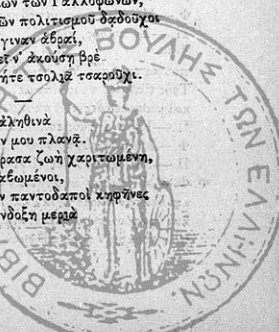 τῶν Γαλλοφώνων,
πολιτισμοῦ δᾳδοῦχοι
ἔγιναν ἁβραί,
ν' ἀκούσῃ βρὲ
τσολιᾶ τσαροῦχι.
ἀληθινὰ
μου πλανᾷ.
ζωὴ χαριτωμένη,
παντοδαποὶ κηφῆνες
ἔνδοξη μεριὰ
ΒΟΥΛΗΣ ΤΩΝ ΕΛΛΗΝΩΝ